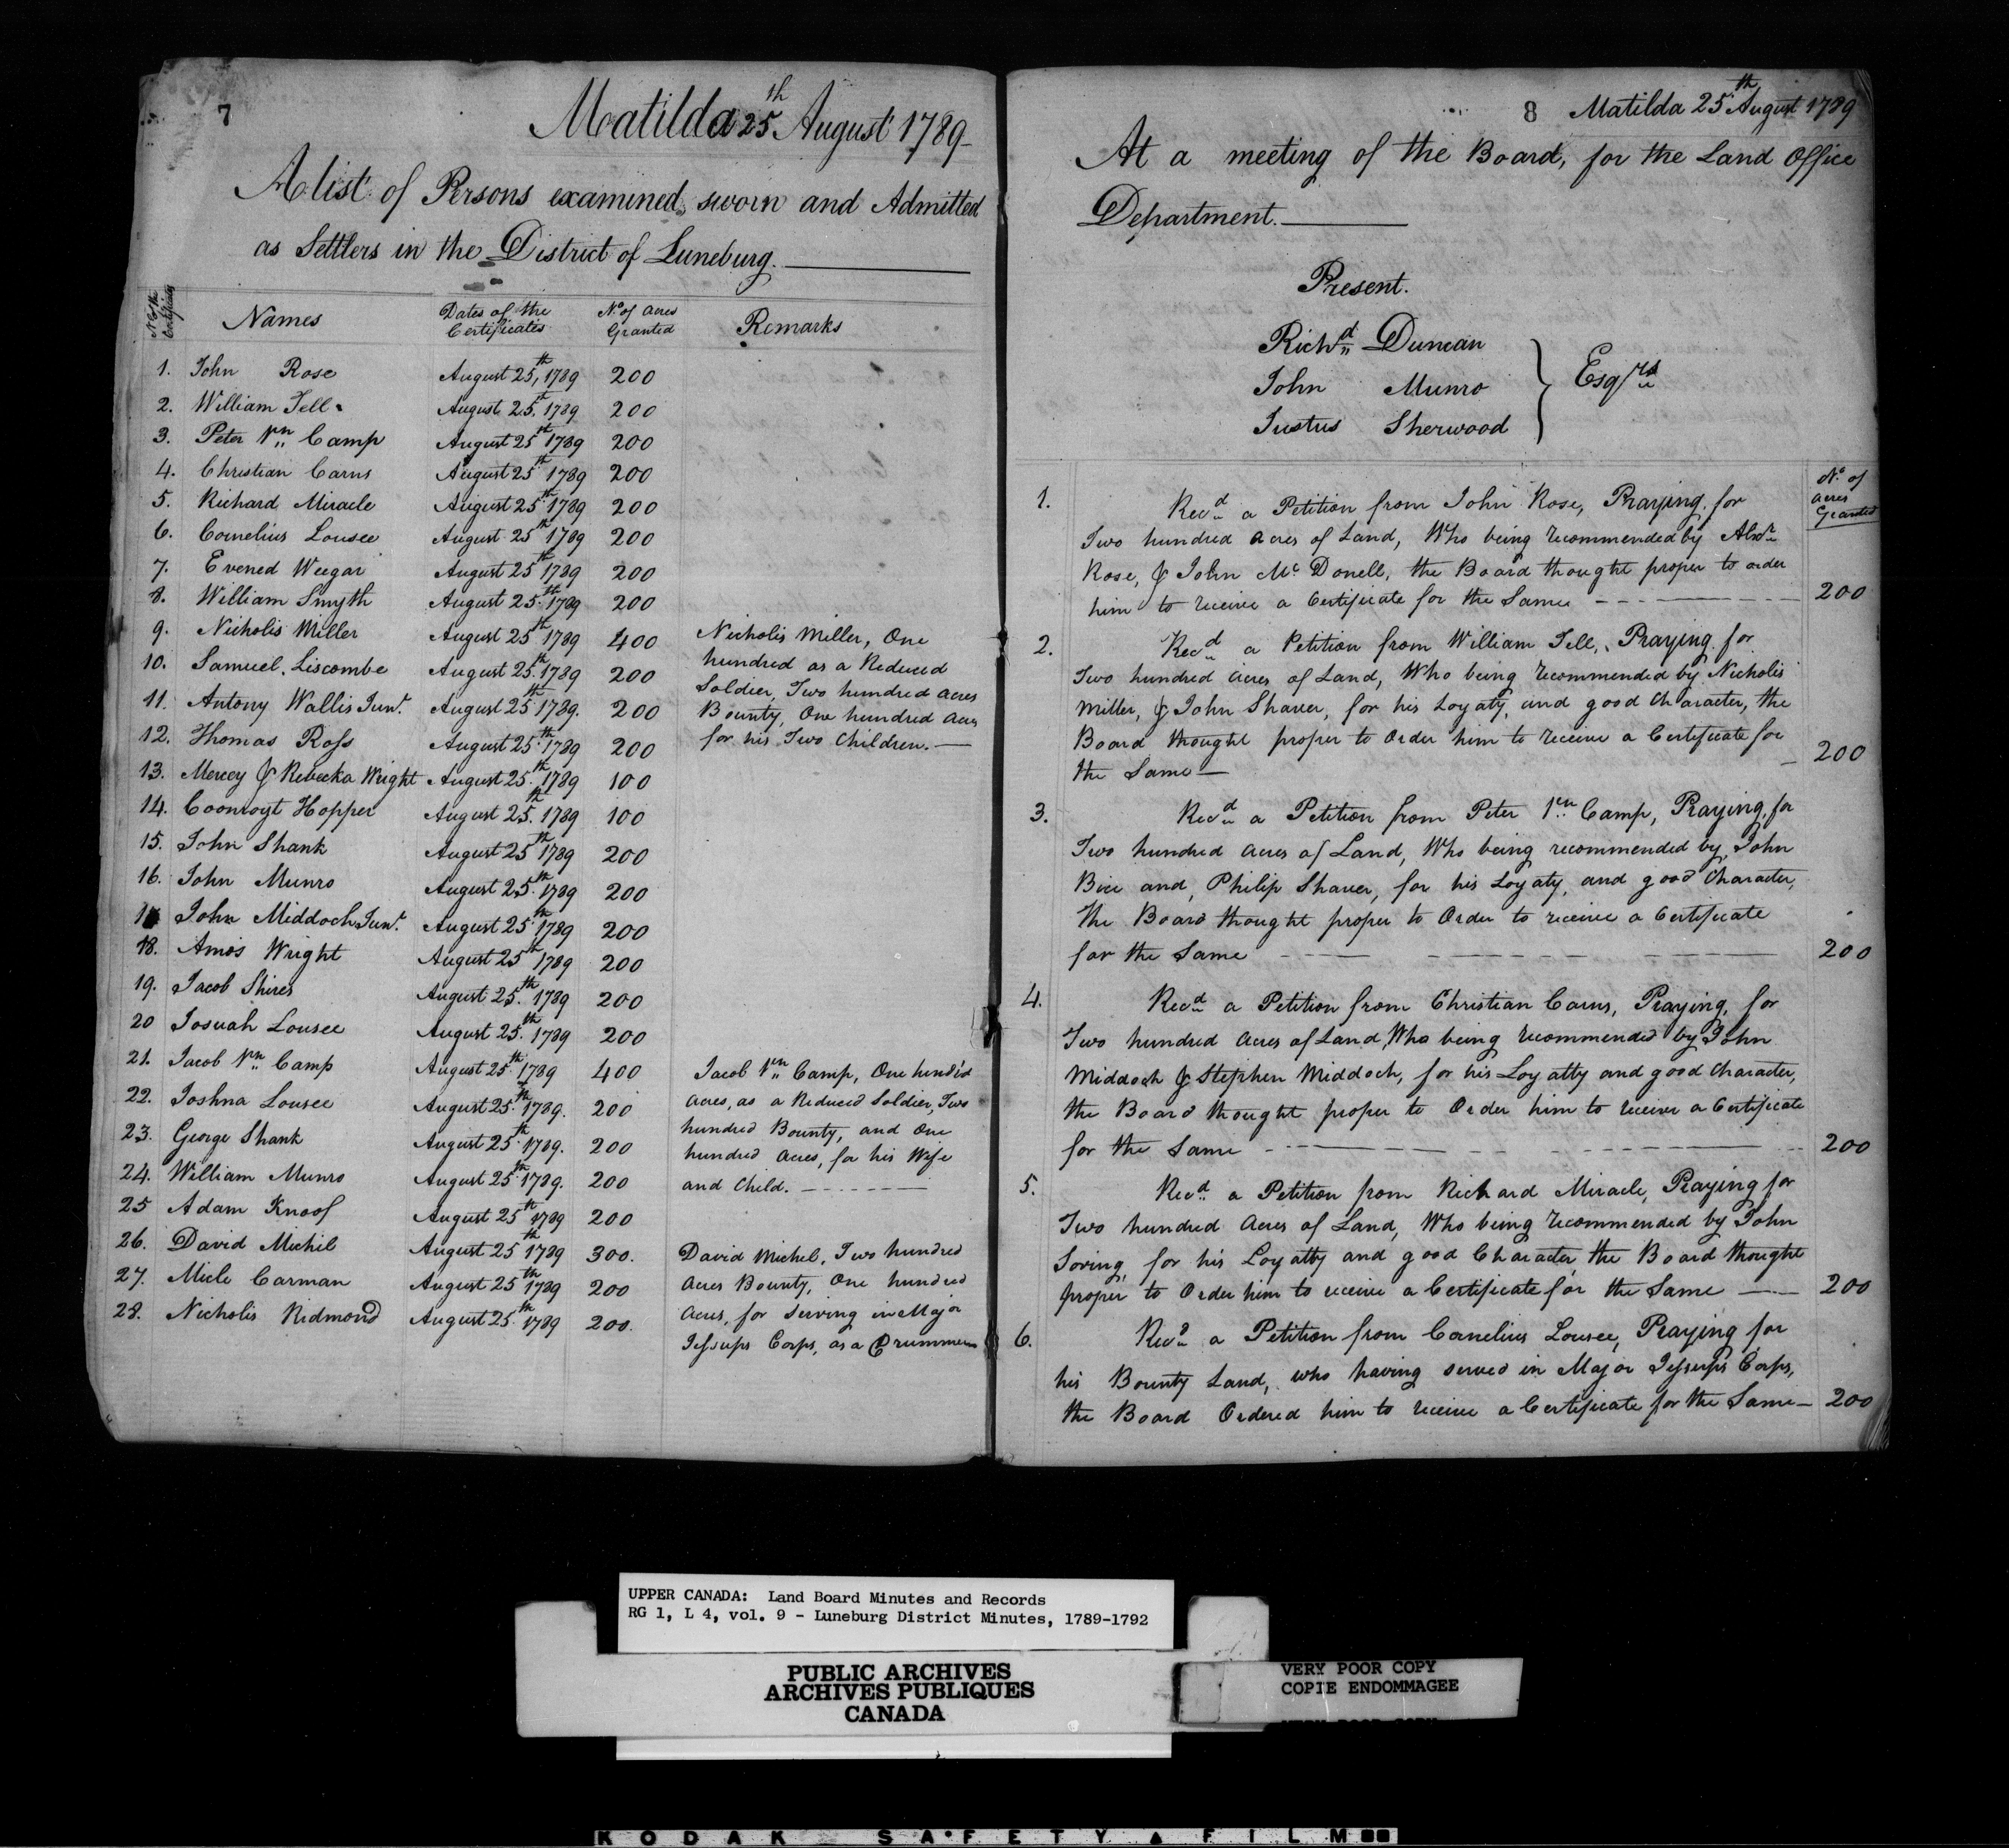 7
Matilda 25th August 1789
A list of Persons examined, sworn and Admitted
as Settlers in the District of Luneburg.
Names Dates of the Certificates No. of Acres Granted Remarks
1. John Rose August 25th, 1789 200
2. William Tell August 25th. 1789 200
3. Peter Vn. Camp August 25th 1789 200
4. Christian Carns August 25th 1789 200
5. Richard Miracle August 25th 1789 200
6. Cornelius Lousee August 25th 1789 200
7. Evened Weegar August 25th 1789 200
8. William Smyth August 25th. 1789 200
9. Nicholis Miller August 25th 1789 400 Nicholis Miller, One
10. Samuel Liscombe August 25th. 1789 200 hundred as a Reduced
Soldier, Two hundred acres
11. Antony Wallis Junr. August 25th 1789. 200 Bounty, One hundred Acres
12. Thomas Ross August 25th. 1789 200 for his Two Children.
13. Mercey & Rebecka Wright August 25th. 1789 100
14. Coonroyt Hopper August 25th. 1789 100
15. John Shank August 25th 1789 200
16. John Munro August 25th. 1789 200
17 John Middoch Junr. August 25th 1789 200
18. Amos Wright August 25th 1789 200
19. Jacob Shires August 25th. 1789 200
20 Josuah Lousee August 25th. 1789 200
21. Jacob Vn. Camp August 25th. 1789 400 Jacob Vn. Camp, One hundd
22. Joshna Lousee August 25th. 1789. 200 Acres, as a Reduced Soldier, Two
23. George Shank August 25th. 1789. 200 hundred Bounty, and One
hundred Acres, for his Wife
24. William Munro August 25th 1789. 200 and Child.
25 Adam Knoof August 25th 1789 200
26. David Michil August 25th 1789 300. David Michel, Two hundred
27. Micle Carman August 25th 1789 200 Acres Bounty, One hundred
28. Nicholis Ridmond August 25th. 1789 200. Acres, for Serving in Major
Jessups Corps, as a Drummer
8 Matilda 25th August 1789
At a meeting of the Board, for the Land Office
Department.
Present.
Richd. Duncan
John Munro
Justus Sherwood
Esqrs
No. of
acres
Granted
1. Recd a Petition from John Rose, Praying for
Two hundred acres of Land, Who being recommended by Alexr
Rose, & John Mc Donell, the Board thought proper to order
him to receive a Certificate for the Same 200
2. Recd a Petition from William Tell, Praying for
Two hundred acres of Land, Who being recommended by Nicholis
Miller, & John Shaver, for his Loyaty, and good Character, the
Board thought proper to Order him to receive a Certificate for
the Same 200
3. Recd a Petition from Peter Vn. Camp, Praying for
Two hundred acres of Land, Who being recommended by John
Bice and, Philip Shaver, for his Loyaty, and good Character,
the Board thought proper to Order to receive a Certificate
for the Same 200
4. Recd a Petition from Christian Carns, Praying, for
Two hundred acres of Land, Who being recommended by John
Middoch & Stephen Middoch, for his Loyatty and good Character,
the Board thought proper to Order him to receive a Certificate
for the Same 200
5. Recd a Petition from Richard Miracle, Praying for
Two hundred Acres of Land, Who being recommended by John
Soring, for his Loyatty and good Character, the Board thought
proper to Order him to receive a Certificate for the Same 200
6. Recd a Petition from Cornelius Lousee, Praying for
his Bounty Land, who having served in Major Jessups Corps,
the Board Ordered him to receive a Certificate for the Same 200
UPPER CANADA: Land Board Minutes and Records
RG 1, L 4, vol. 9 - Luneburg District Minutes, 1789-1792
PUBLIC ARCHIVES
ARCHIVES PUBLIQUES
CANADA
VERY POOR COPY
COPIE ENDOMMAGEE
KODAK SAFETY FILM